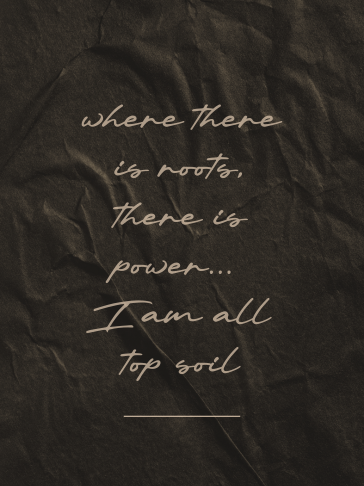 where there
is roots,
there is
power...
I am all
top soil